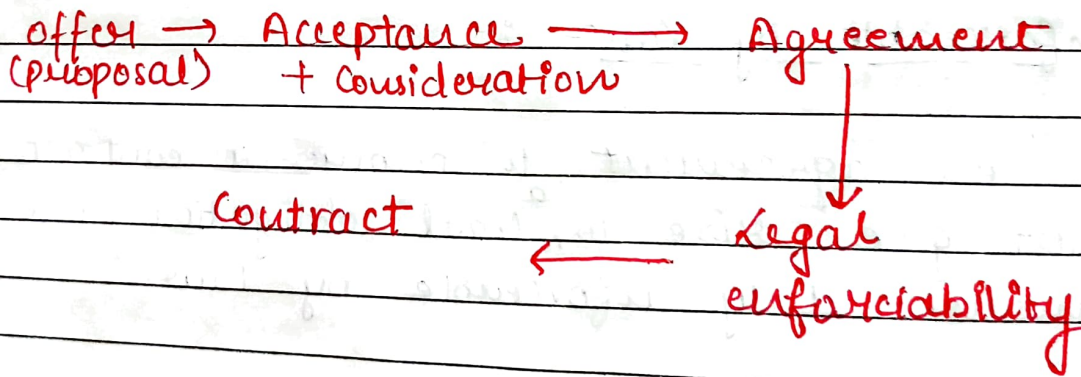 offer → Acceptance → Agreement
(proposal) + Consideration
Contract ← Legal
enforciability